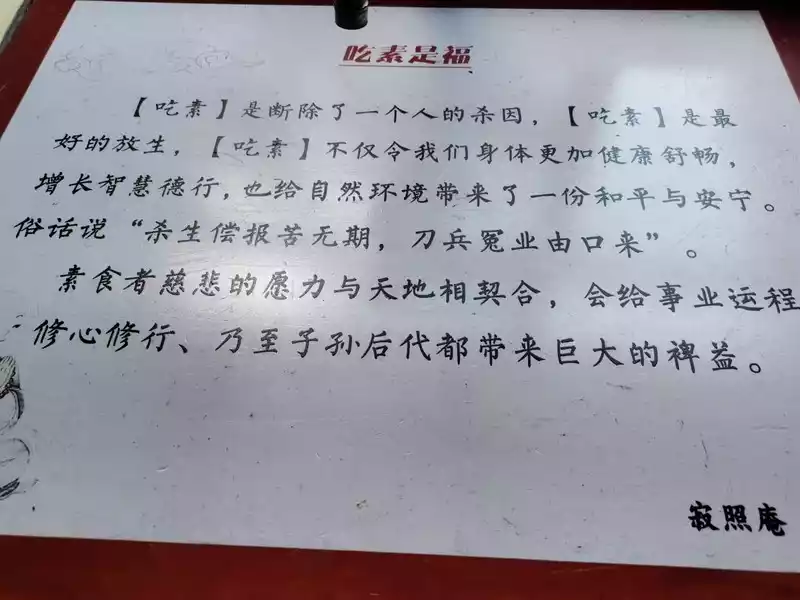 吃素是福
【吃素】是断除了一个人的杀因，【吃素】是最
好的放生，【吃素】不仅令我们身体更加健康舒畅，
增长智慧德行，也给自然环境带来了一份和平与安宁。
俗话说“杀生偿报苦无期，刀兵冤业由口来”。
素食者慈悲的愿力与天地相契合，会给事业运程
修心修行、乃至子孙后代都带来巨大的裨益。
寂照庵